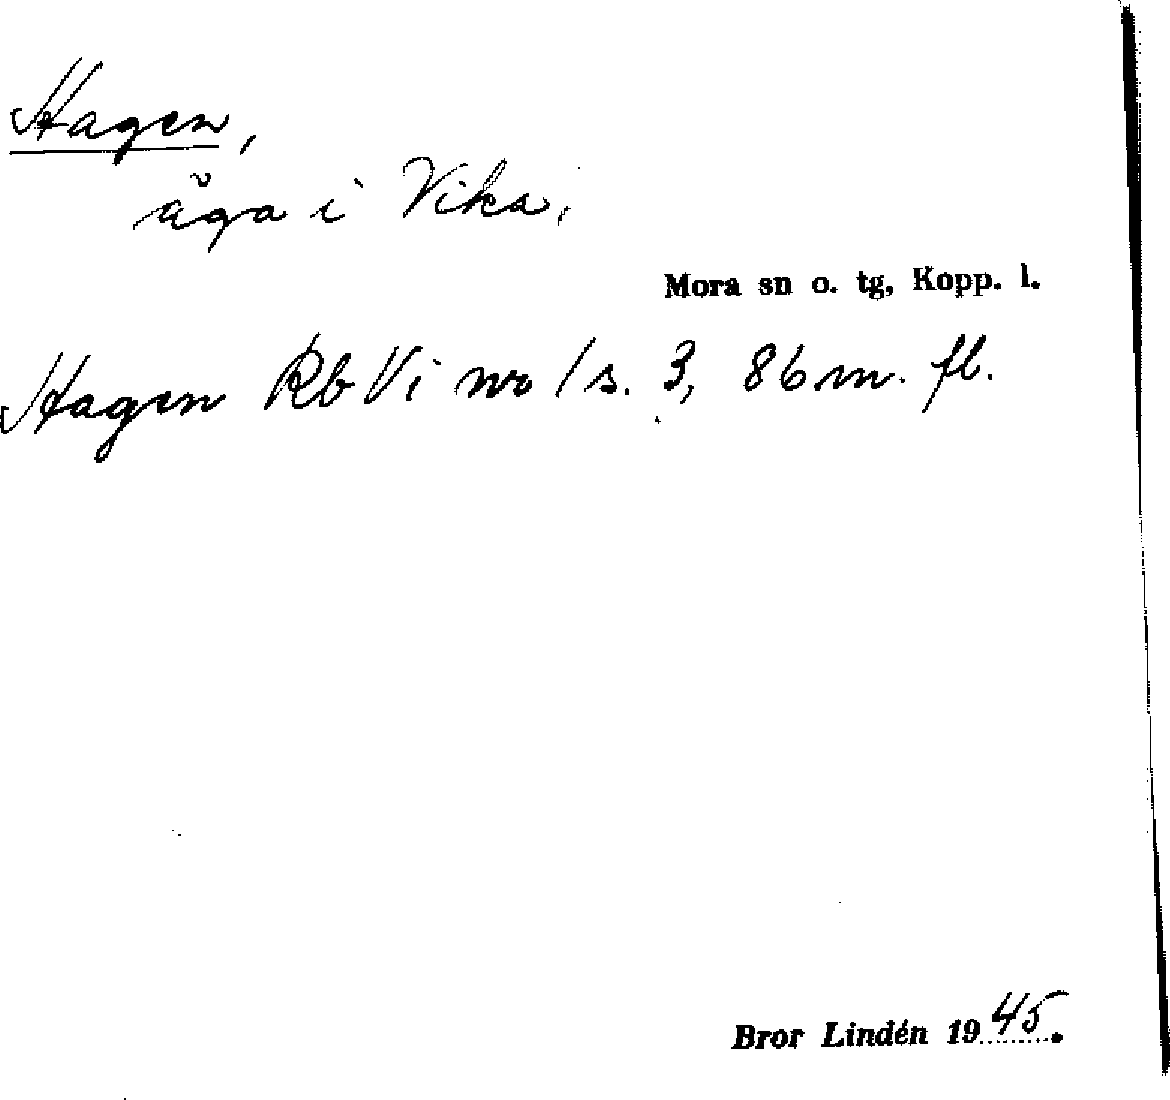 Hagen,
äga i Vika,
Mora sn o. tg, Kopp. l.
Hagen Rb Vi nr 1 s. 3, 86 m. fl.
Bror Lindén 1945.